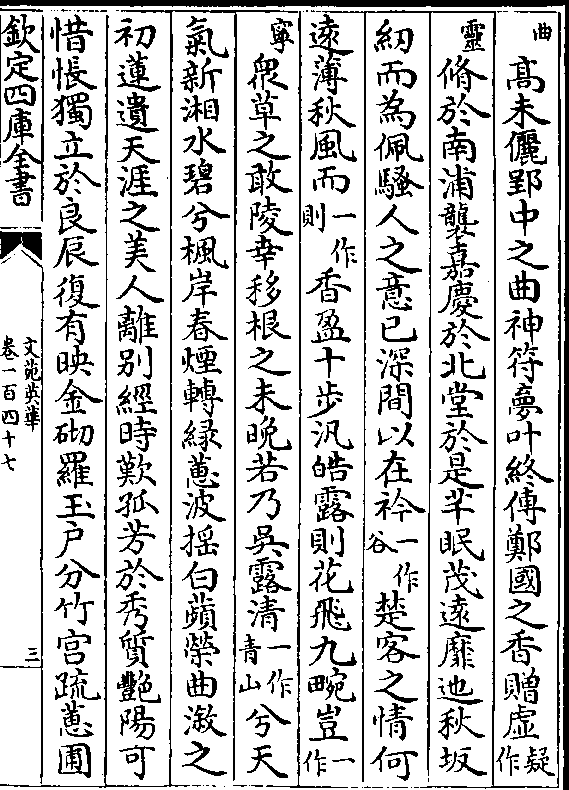 曲高未儷郢中之曲神符夢叶終傳鄭國之香贈虛疑作
靈脩於南浦襲嘉慶於北堂於是芊眠茂遠靡迤秋坂
紉而為佩騷人之意已深間以在衿一作谷楚客之情何
遠薄秋風而一作則香盈十步汎皓露則花飛九畹豈一作
寧衆草之敢陵幸移根之未晚若乃吳露清一作青山兮天
氣新湘水碧兮楓岸春煙轉緑蕙波揺白蘋榮曲溆之
初蓮遺天涯之美人離别經時歎孤芳於秀質艷陽可
惜悵獨立於良辰復有映金砌羅玉戸分竹宫疏蕙圃
欽定四庫全書
文苑英華
卷一百四十七
三